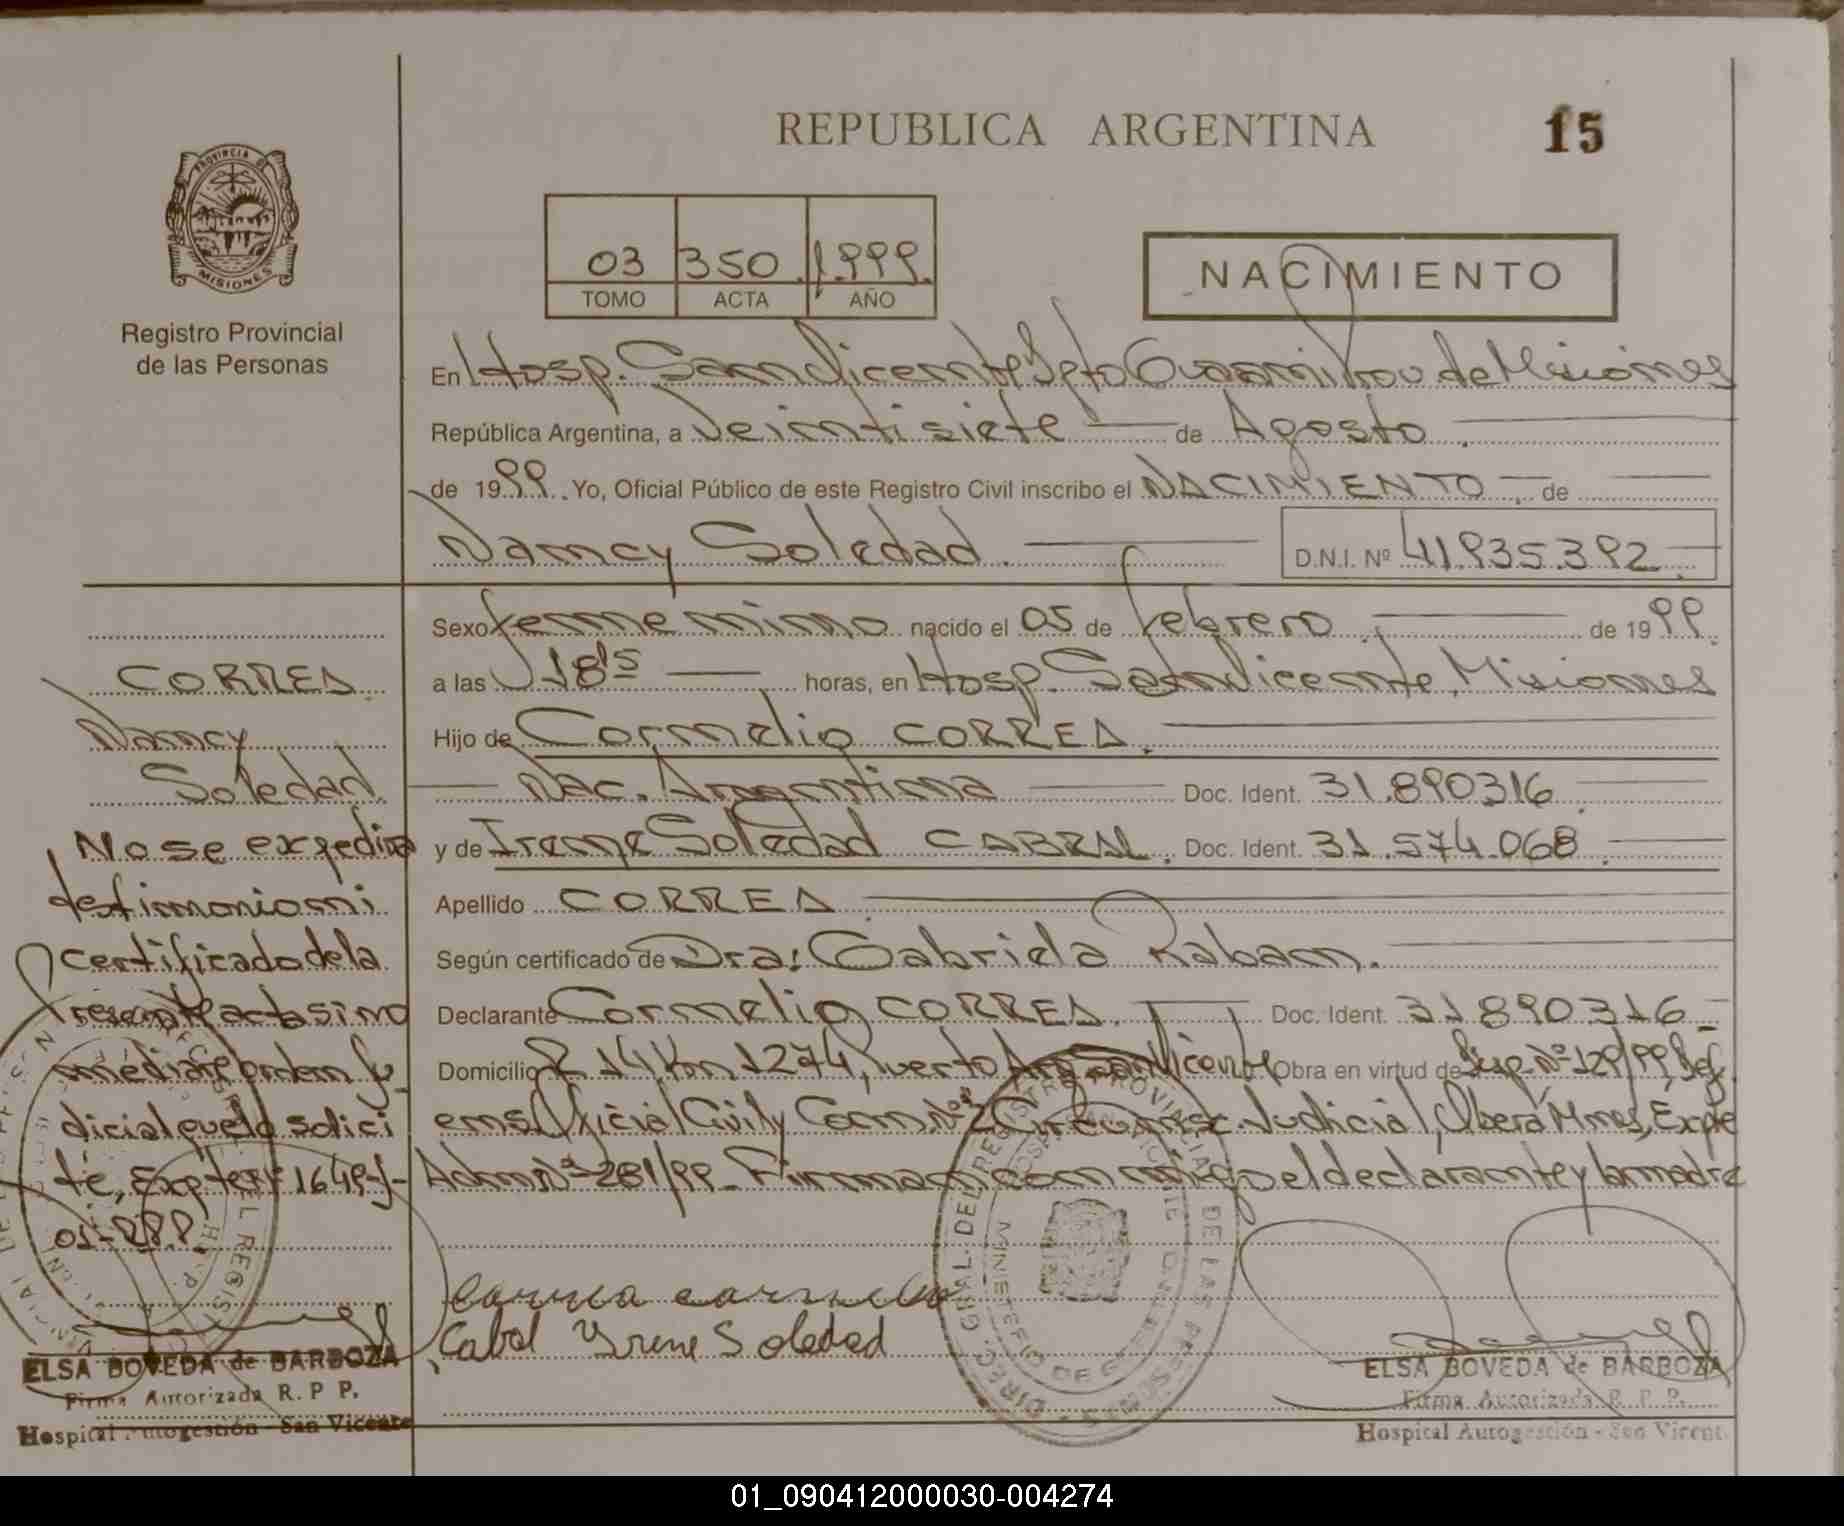 REPUBLICA ARGENTINA
15
PROVINCIA DE
MISIONES
Registro Provincial
de las Personas
03 350 1.999.
TOMO ACTA AÑO
NACIMIENTO
En Hosp. San Vicente Dpto Guarani Prov de Misiones
República Argentina, a Veintisiete de Agosto
de 1999. Yo, Oficial Público de este Registro Civil inscribo el NACIMIENTO de
Nancy Soledad D.N.I. Nº 41.935.392
Sexo femenino nacido el 05 de febrero de 1999.
a las 18 15 horas, en Hosp. San Vicente, Misiones
Hijo de Cornelio CORREA.
Nac. Argentina Doc. Ident. 31.890316
y de Irene Soledad CABRAL. Doc. Ident. 31.574.068.
Apellido CORREA
Según certificado de Dra: Gabriela Raban.
Declarante Cornelio CORREA. Doc. Ident. 31890316
Domicilio R 14, Km 1274, Puerto Arg San Vicente Obra en virtud de Disp. Nº 129/99, Def.
ens. Oficial Civil y Com. Nº 2 Circunsc. Judicial, Oberá Mnes, Expte
Adm Nº 281/99 - Firman conmigo el declarante y la madre
Cabal Yrene Soledad
ELSA BOVEDA de BARBOZA
Firma Autorizada R. P. P.
Hospital Autogestión - San Vicent.
CORREA
Nancy
Soledad
No se expedira
testimonio ni
certificado de la
presente acta sino
mediare orden Ju
dicial que lo solici
te, Expte Nº 1649-J-
01-
ELSA BOVEDA de BARBOZA
Firma Autorizada R. P P.
Hospital Autogestión - San Vicente
01_090412000030-004274